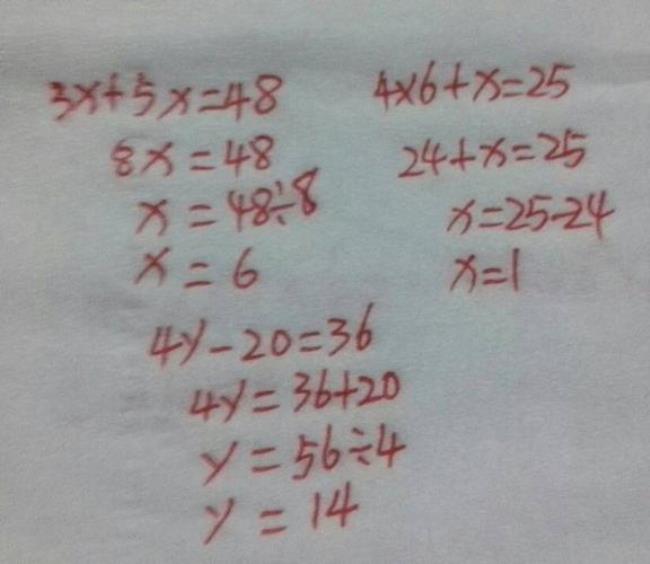 3x+5x=48
8x=48
x=48÷8
x=6
4×6+x=25
24+x=25
x=25-24
x=1
4y-20=36
4y=36+20
y=56÷4
y=14